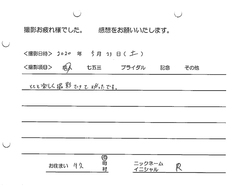 撮影お疲れ様でした。 感想をお願いいたします。
<撮影日時> 2020 年 5月 23日 (土)
<撮影項目> 七五三 ブライダル 記念 その他
とても楽しく撮影できて良かったです。
お住まい 市 ニックネーム イニシャル R